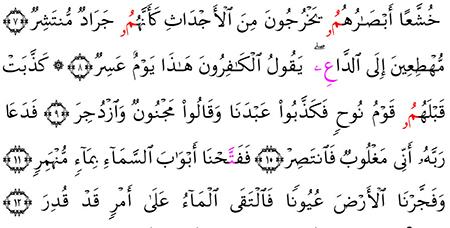 خُشَّعًا أَبْصَٰرُهُمُۥ يَخْرُجُونَ مِنَ ٱلْأَجْدَاثِ كَأَنَّهُمُۥ جَرَادٌ مُّنتَشِرٌ ﴿٧﴾
مُّهْطِعِينَ إِلَى ٱلدَّاعِۦ ۖ يَقُولُ ٱلْكَٰفِرُونَ هَٰذَا يَوْمٌ عَسِرٌ ﴿٨﴾ ۞ كَذَّبَتْ
قَبْلَهُمُۥ قَوْمُ نُوحٍ فَكَذَّبُوا۟ عَبْدَنَا وَقَالُوا۟ مَجْنُونٌ وَٱزْدُجِرَ ﴿٩﴾ فَدَعَا
رَبَّهُۥ أَنِّى مَغْلُوبٌ فَٱنتَصِرْ ﴿١٠﴾ فَفَتَّحْنَا أَبْوَٰبَ ٱلسَّمَآءِ بِمَآءٍ مُّنْهَمِرٍ ﴿١١﴾
وَفَجَّرْنَا ٱلْأَرْضَ عُيُونًا فَٱلْتَقَى ٱلْمَآءُ عَلَىٰٓ أَمْرٍ قَدْ قُدِرَ ﴿١٢﴾